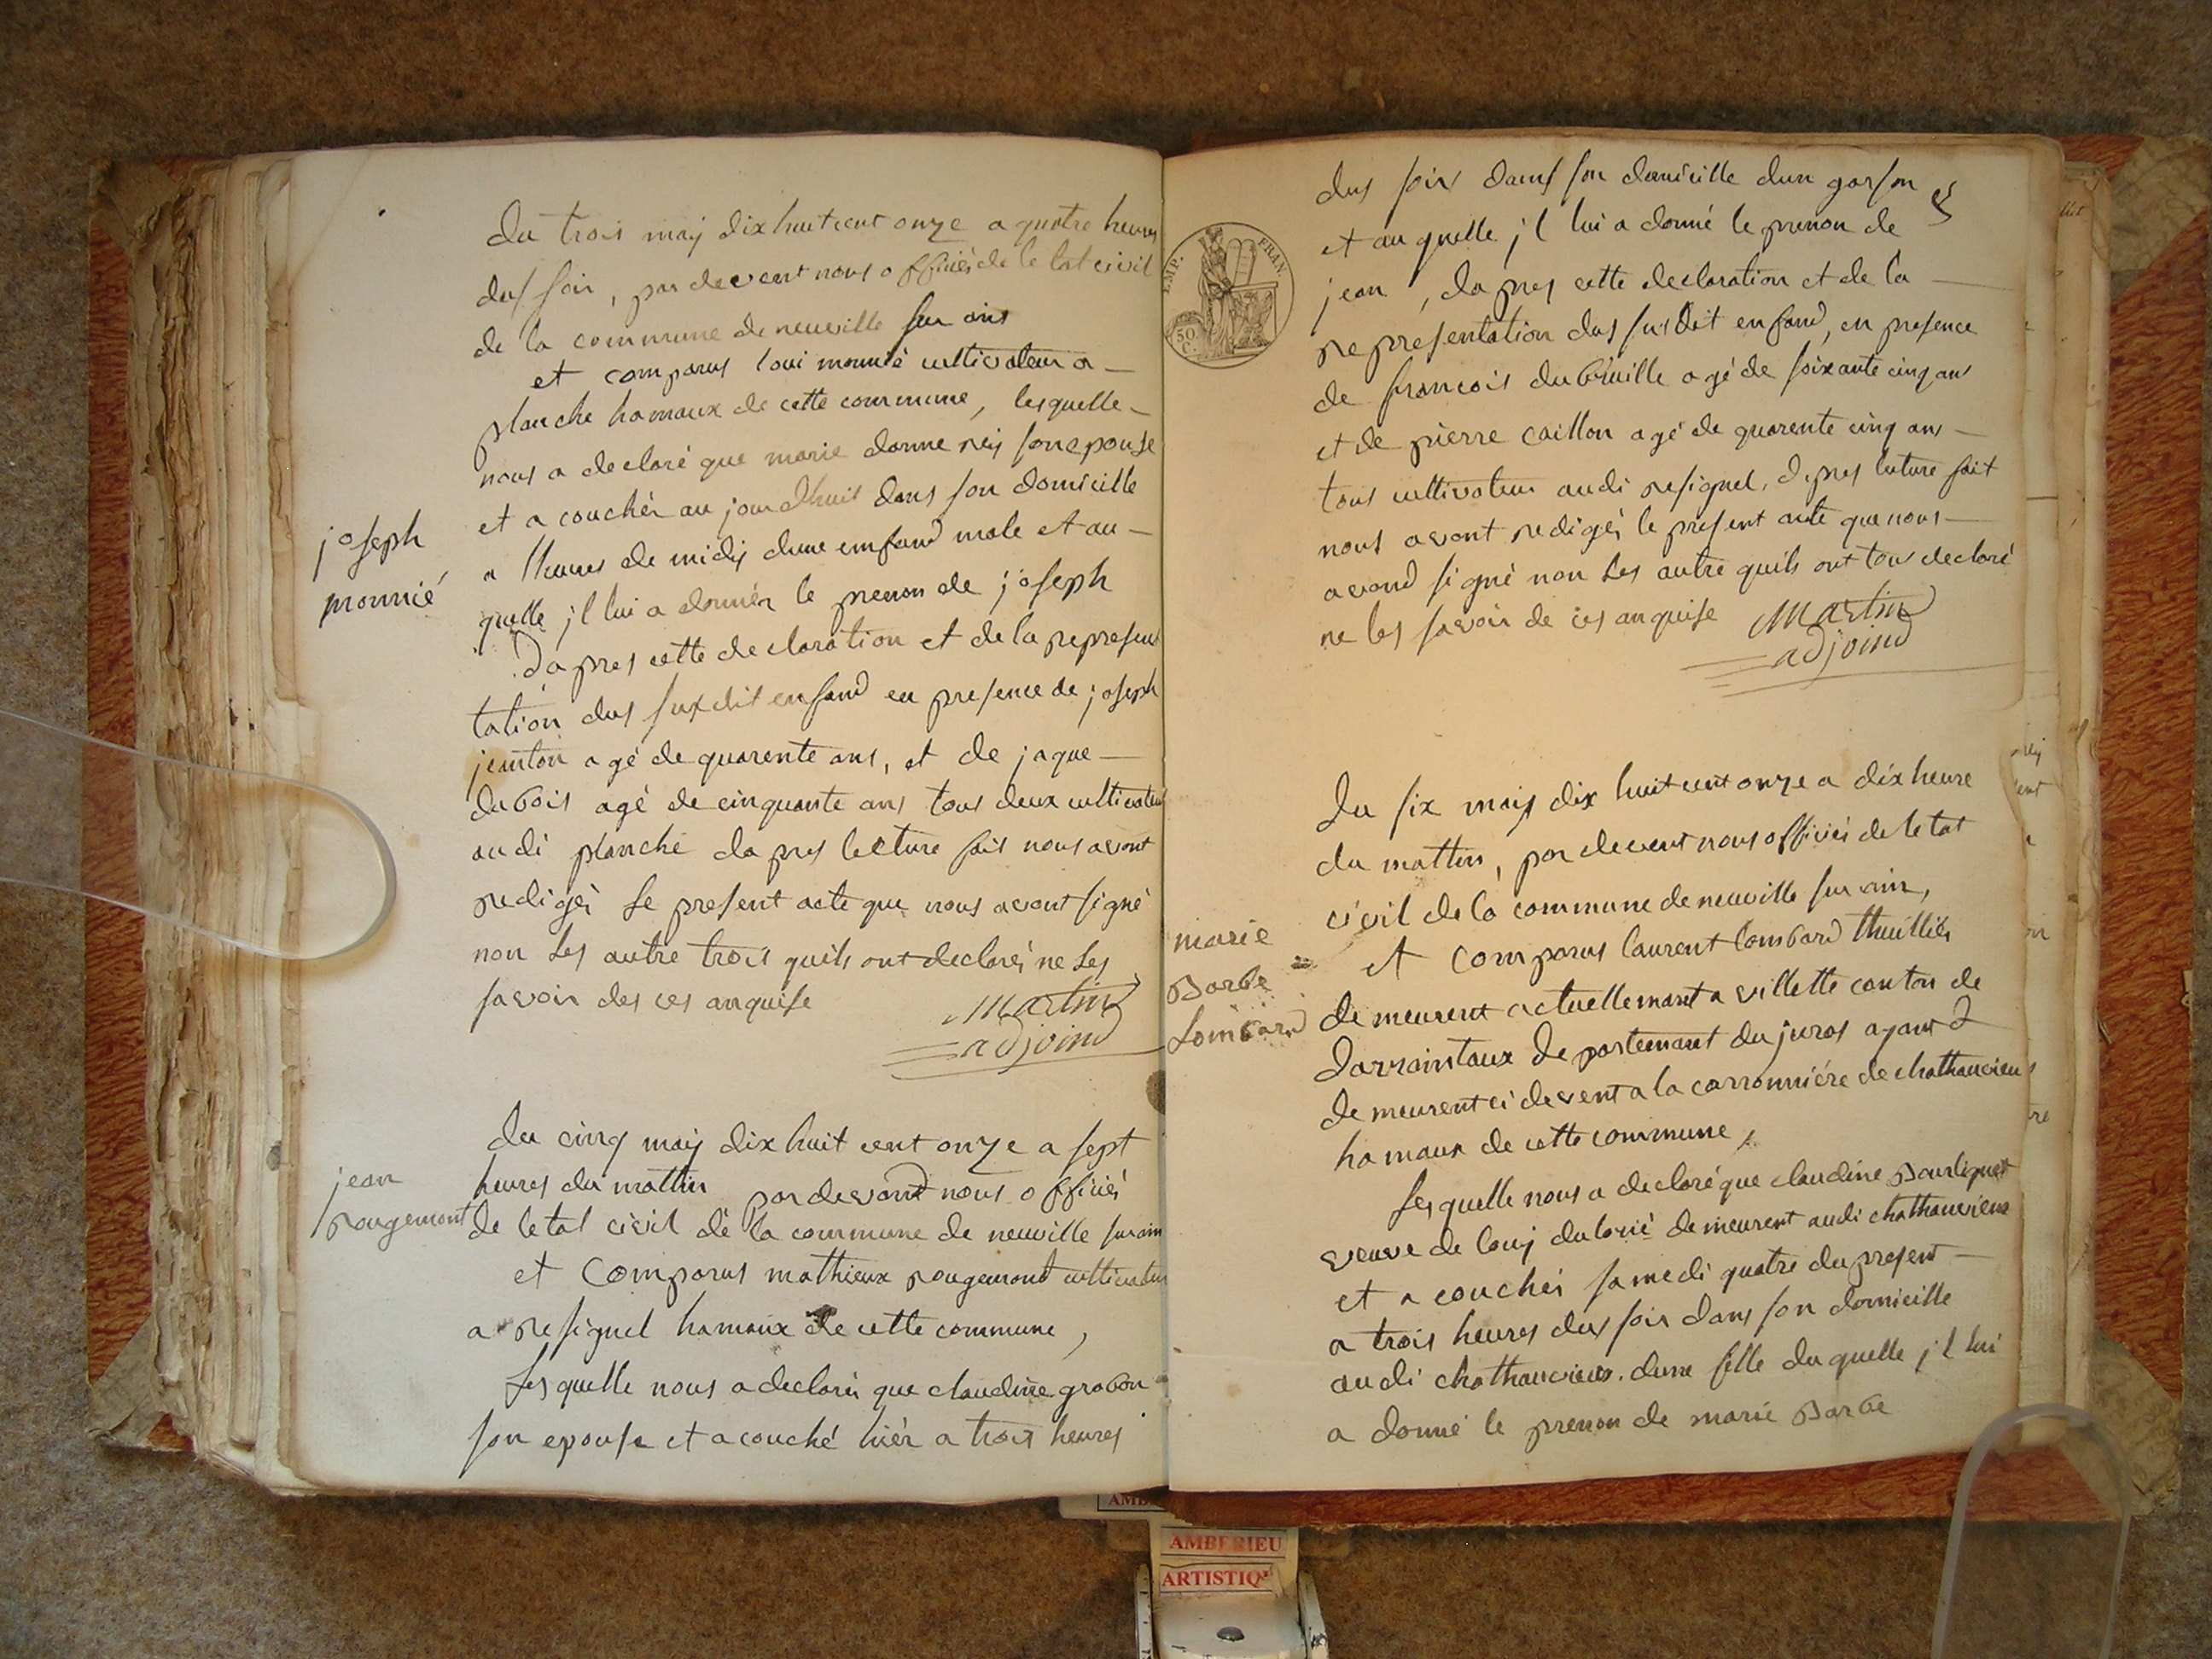 du trois maij dix huit cent onze a quatre heures
dus soir, par devent nous officiés de le tat civil
de la commune de neuville sur ains
et comparus loui monnié cultivateur a
planche hamaux de cette commune, lesquelle
nous a declaré que marie donne rey son epouse
et a couchér au jourdhuit dans son domicille
a lheures de midij dune enfand male et au
quelle jl lui a donnér le prenon de joseph
joseph
monnié
Dapres cette declaration et de la represen
tation dus susdit enfand en presence de joseph
jeanton agé de quarente ans, et de jaque
dubois agé de cinquante ans tous deux cultivateur
audi planche dapres lecture fait nous avont
redigér le present acte que nous avont signé
non les autre trois quils ont declarér ne les
savoir des ces anquise
Martin
adjoind
du cinq maij dix huit cent onze a sept
heures du mattin par devand nous officiés
jean
rougemont
de letat civil de la commune de neuville sur ain
et Comparus mathieux rougemond cultivateur
a resignel hamaux de cette commune,
Lesquelle nous a declarér que claudine grabon
son epouse et a couché hièr a trois heures
dus soir dans son domicille dun garson
et au quelle jl lui a donné le prenon de
jean, dapres cette declaration et de la
representation dus susdit enfand, en presence
de francois dubreuille agé de soixante cinq ans
et de pierre caillon agé de quarente cinq ans
tous cultivateur audi resignel, dapres lecture fait
nous avont redigér le present acte que nous
avond signé non les autre quils ont tous declaré
ne les savoir de ces anquise
Martin
adjoind
E.MP. FRAN.
50 C.
du six maij dix huit cent onze a dix heure
du mattin, par devent nous officiér de letat
civil de la commune de neuville sur ain,
marie
Barbe
Lombard
et Comparus laurent lombard thuilliér
demeurent actuellemant a villette canton de
darraintaux departemant du juras ayant
demeurent ci devent a la carronniére de chathauvieux
hamaux de cette commune,
Lesquelle nous a declaré que claudine
veuve de louij demeurent audi chathauvieux
et a couchér samedi quatre du present
a trois heures dus soir dans son domicille
audi chathauvieux. dune fille du quelle jl lui
a donné le prenon de marie Barbe
AMBERIEU
ARTISTIQ